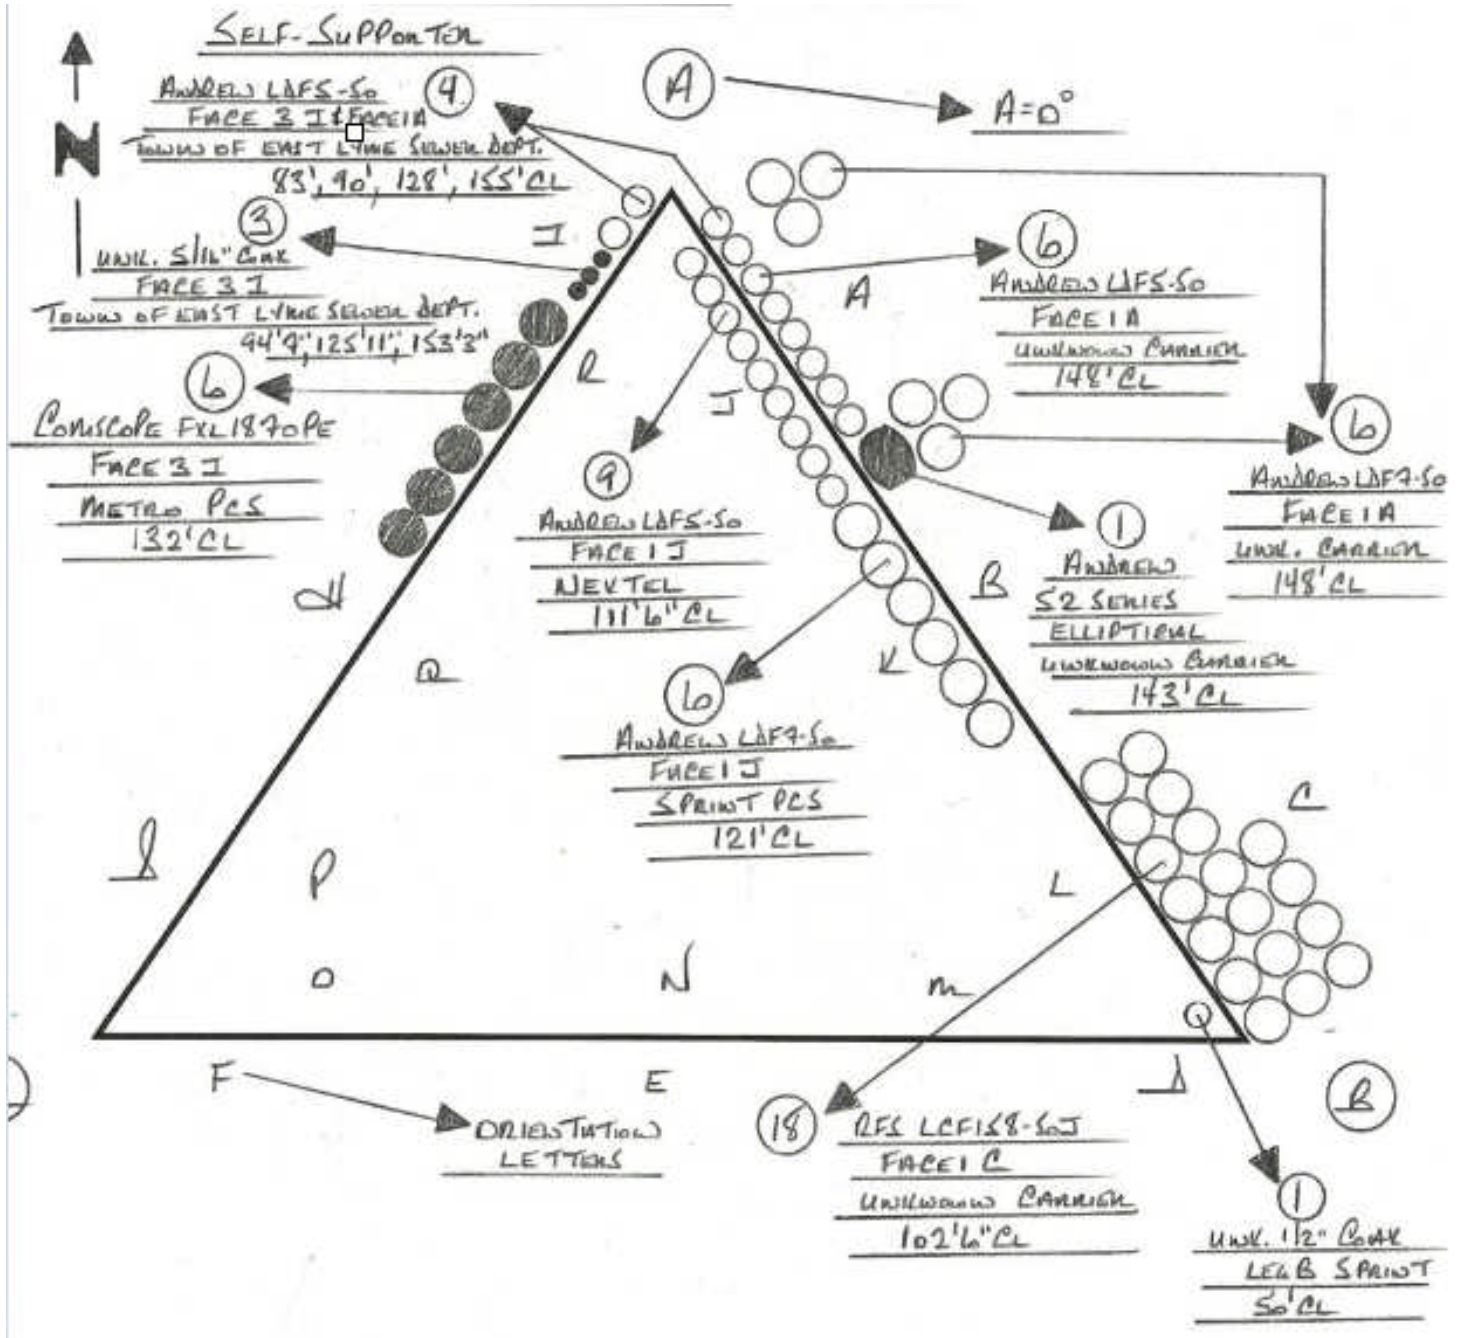 SELF-SUPPORTER
N
ANDREW LDF5-50
FACE 3 I & FACE 1A
TOWN OF EAST LYME SEWER DEPT.
83', 90', 128', 155' CL
4
A
A=0°
3
UNK. 5/16" COAX
FACE 3 I
TOWN OF EAST LYME SEWER DEPT.
94'9", 125'11", 153'3"
6
COMSCOPE FXL1870PE
FACE 3 I
METRO PCS
132' CL
I
R
H
Q
A
J
6
ANDREW LDF5-50
FACE 1A
UNKNOWN CARRIER
148' CL
6
ANDREW LDF7-50
FACE 1A
UNK. CARRIER
148' CL
9
ANDREW LDF5-50
FACE 1 J
NEXTEL
111'6" CL
1
ANDREW
52 SERIES
ELLIPTICAL
UNKNOWN CARRIER
143' CL
B
K
6
ANDREW LDF7-50
FACE 1 J
SPRINT PCS
121' CL
C
P
L
O
N
M
F
E
D
B
ORIENTATION
LETTERS
18
RFS LCF158-50J
FACE 1 C
UNKNOWN CARRIER
102'6" CL
1
UNK. 1/2" COAX
LEG B SPRINT
50' CL